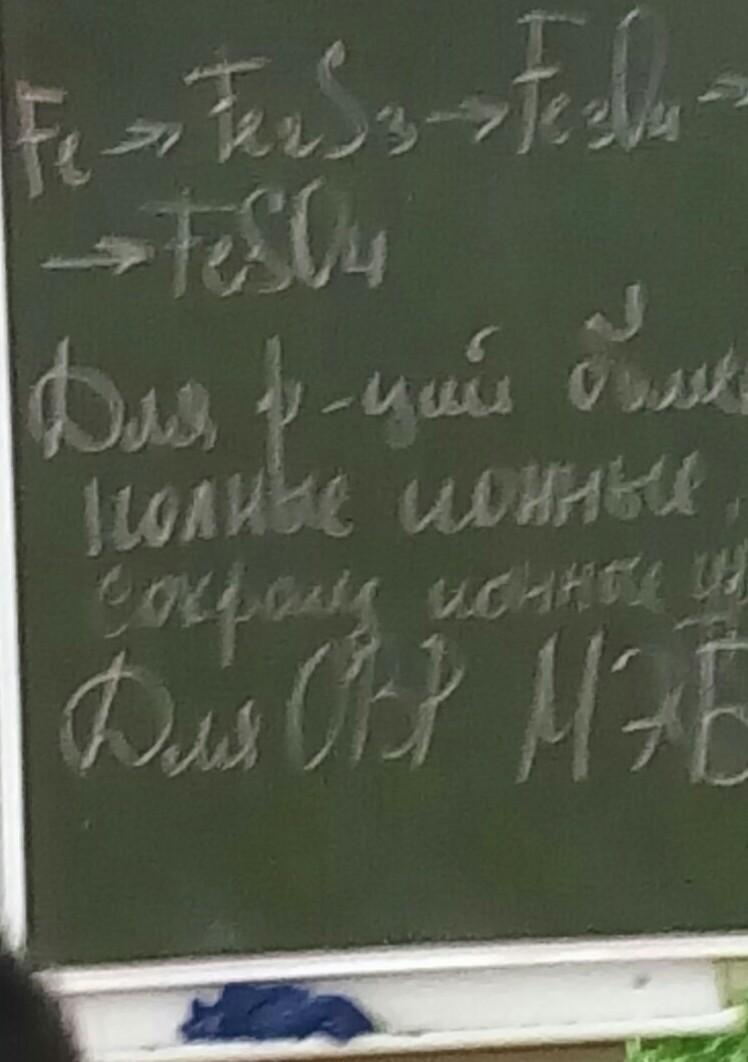 Fe → Fe₂S₃ → Fe₃O₄ →
→ FeSO₄
Для р-ций
полные ионные,
сокращ ионные
Для ОВР МЭБ